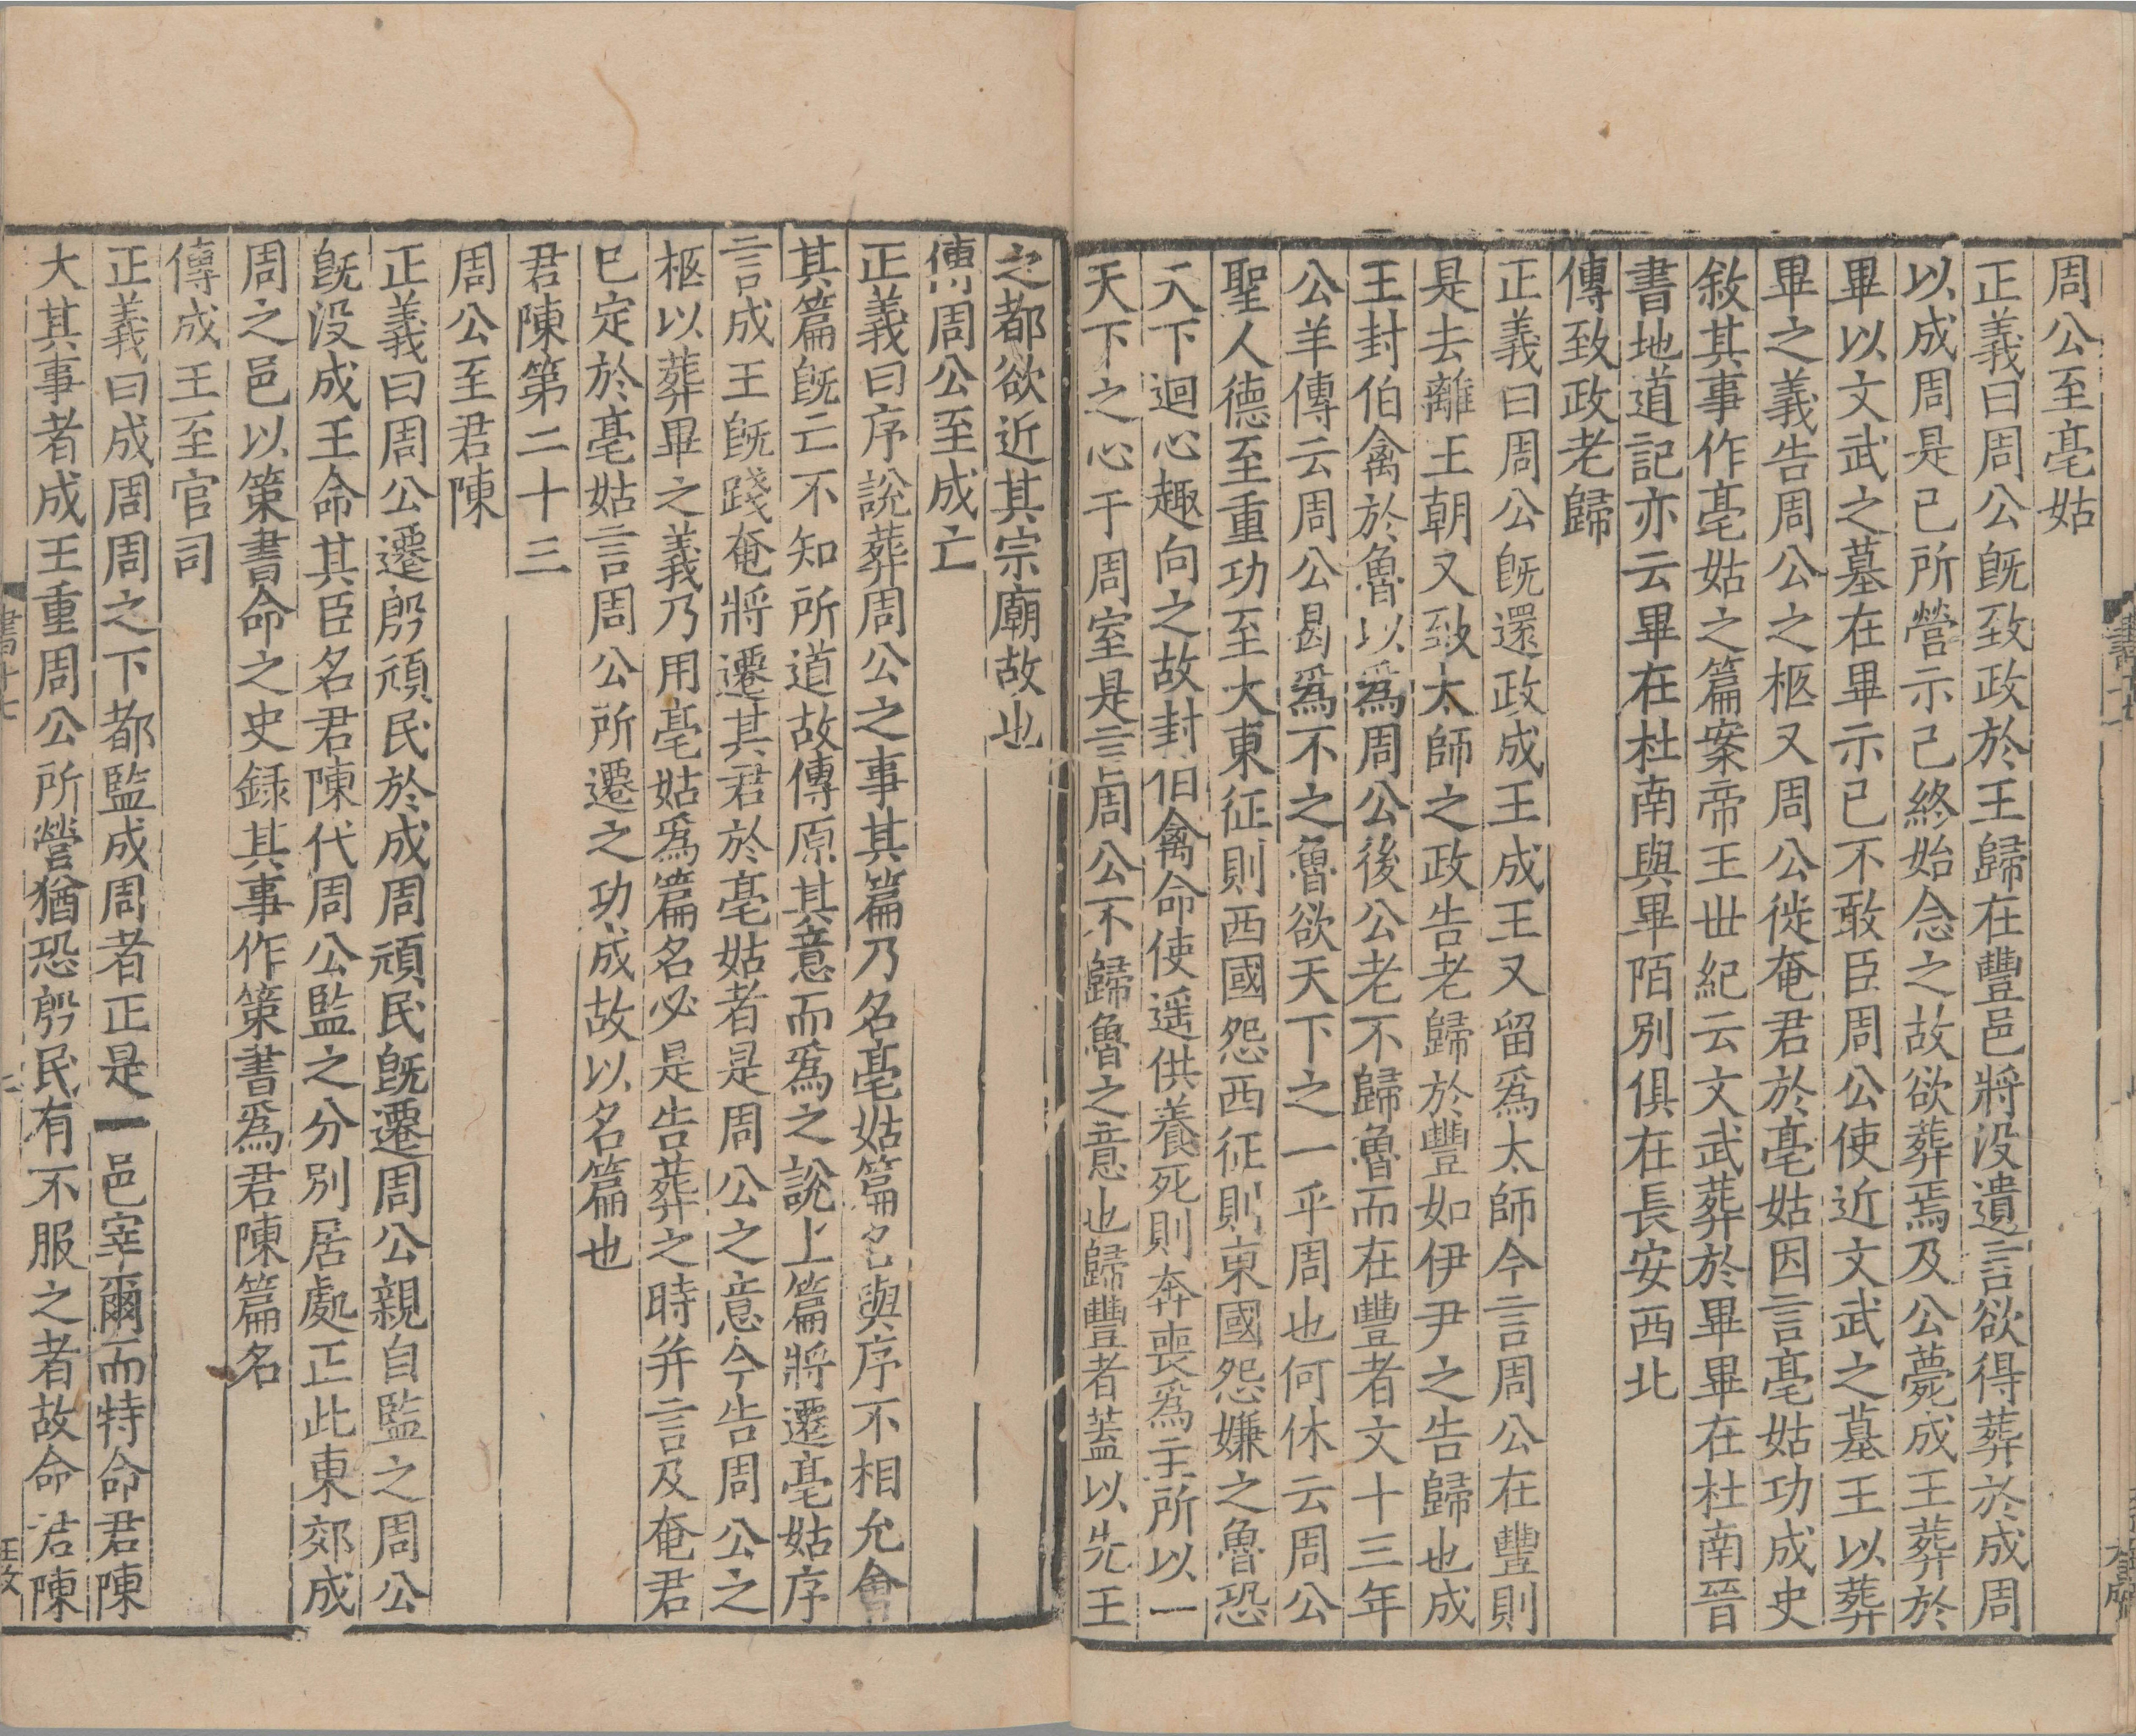 周公至亳姑
正義曰周公旣致政於王歸在豐邑將没遺言欲得葬於成周
以成周是已所營示己終始念之故欲葬焉及公薨成王葬於
畢以文武之墓在畢示已不敢臣周公使近文武之墓王以葬
畢之義告周公之柩又周公徙奄君於亳姑因言亳姑功成史
敘其事作亳姑之篇案帝王丗紀云文武葬於畢畢在杜南晉
書地道記亦云畢在杜南與畢陌別俱在長安西北
傳致政老歸
正義曰周公旣還政成王成王又留爲太師今言周公在豐則
是去離王朝又致太師之政告老歸於豐如伊尹之告歸也成
王封伯禽於魯以爲周公後公老不歸魯而在豐者文十三年
公羊傳云周公曷爲不之魯欲天下之一乎周也何休云周公
聖人德至重功至大東征則西國怨西征則東國怨嫌之魯恐
天下迴心趣向之故封伯禽命使遥供養死則奔喪爲主所以一
天下之心于周室是言周公不歸魯之意也歸豐者蓋以先王
之都欲近其宗廟故也
傳周公至成亡
正義曰序說葬周公之事其篇乃名亳姑篇名與序不相允會
其篇旣亡不知所道故傳原其意而爲之說上篇將遷亳姑序
言成王旣踐奄將遷其君於亳姑者是周公之意今告周公之
柩以葬畢之義乃用亳姑爲篇名必是告葬之時并言及奄君
已定於亳姑言周公所遷之功成故以名篇也
君陳第二十三
周公至君陳
正義曰周公遷殷頑民於成周頑民旣遷周公親自監之周公
旣没成王命其臣名君陳代周公監之分別居處正此東郊成
周之邑以策書命之史録其事作策書爲君陳篇名
傳成王至官司
正義曰成周周之下都監成周者正是一邑宰爾而特命君陳
大其事者成王重周公所營猶恐殷民有不服之者故命君陳
書十七